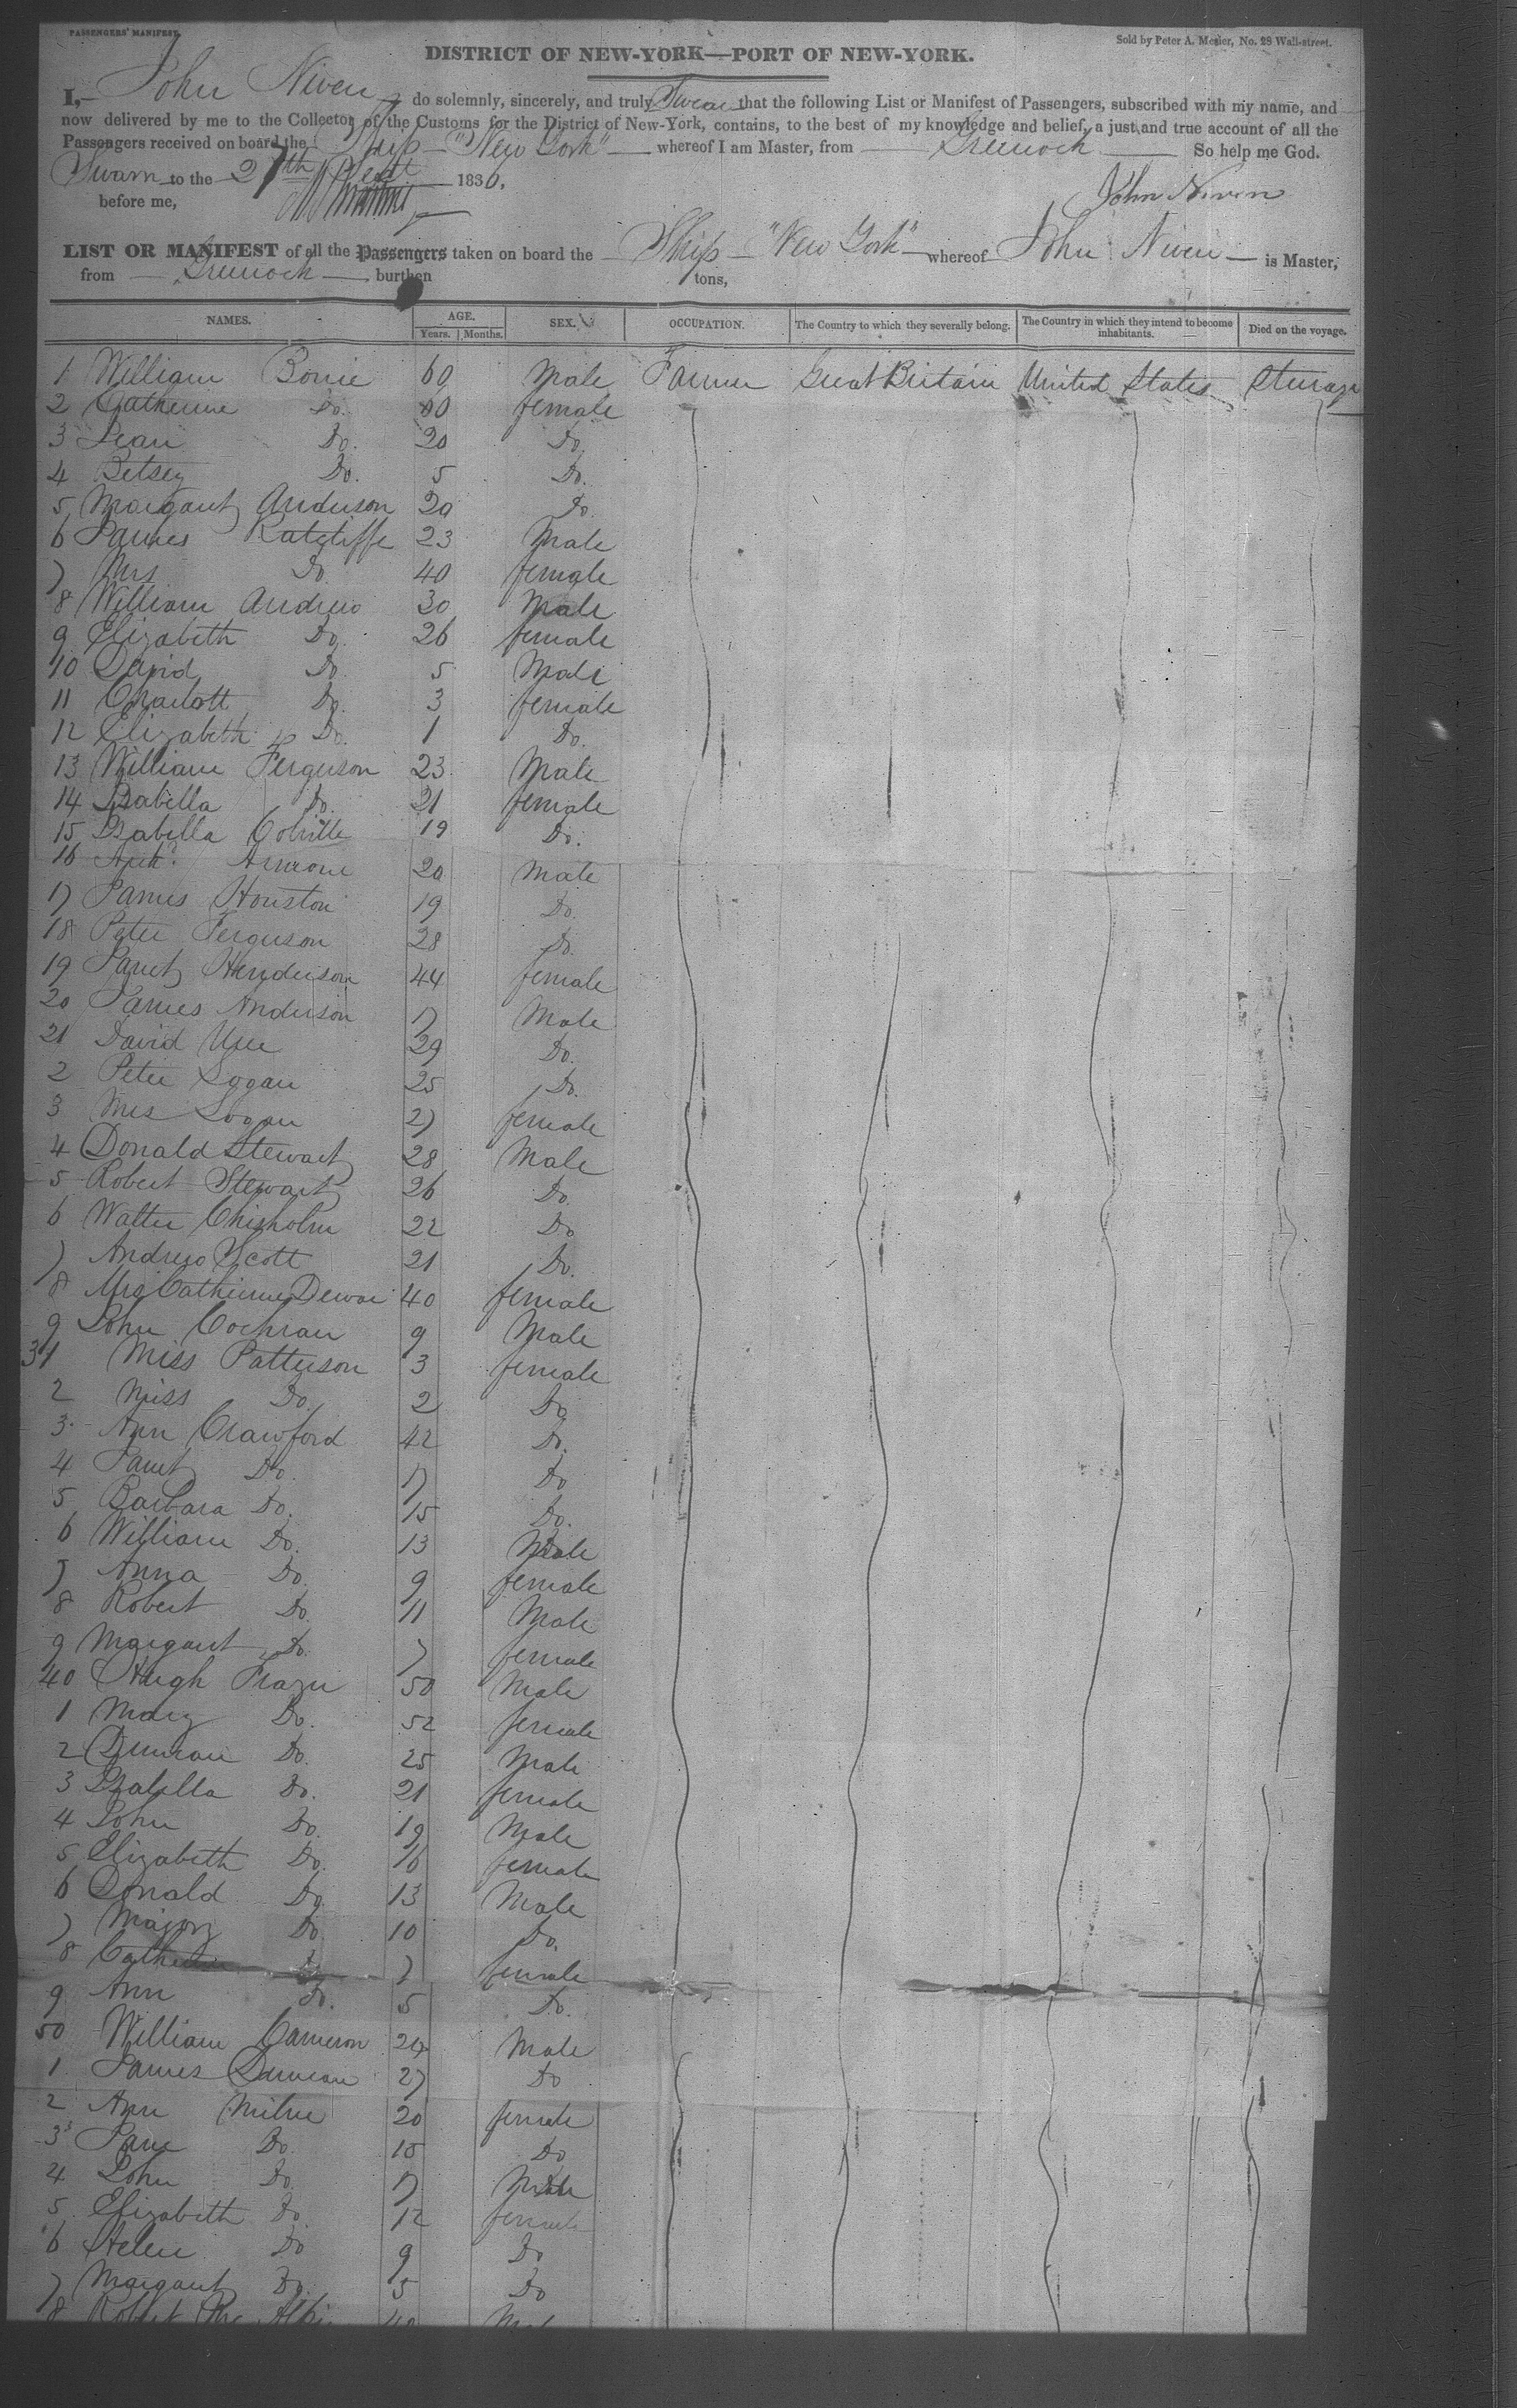 PASSENGERS' MANIFEST.
Sold by Peter A. Mesier, No. 28 Wall-street.
DISTRICT OF NEW-YORK—PORT OF NEW-YORK.
I, John Niven do solemnly, sincerely, and truly Swear that the following List or Manifest of Passengers, subscribed with my name, and
now delivered by me to the Collector of the Customs for the District of New-York, contains, to the best of my knowledge and belief, a just and true account of all the
Passengers received on board the Ship "New York" whereof I am Master, from Greenock So help me God.
Sworn to the 27th Sept 1836.
before me,
John Niven
LIST OR MANIFEST of all the Passengers taken on board the Ship "New York" whereof John Niven is Master,
from Greenock burthen tons,
NAMES. AGE. Years. Months. SEX. OCCUPATION. The Country to which they severally belong. The Country in which they intend to become inhabitants. Died on the voyage.
1 William 60 Male Farmer Great Britain United States Sterage
2 Catherine Do. 60 female
3 Jean Do. 20 Do.
4 Betsey Do. 5 Do.
5 Margaret Anderson 20 Do.
6 James Ratcliffe 23 Male
7 Mrs Do. 40 female
8 William Andrew 30 Male
9 Elizabeth Do. 26 female
10 David Do. 5 Male
11 Charlott Do. 3 female
12 Elizabeth Do. 1 Do.
13 William Ferguson 23 Male
14 Isabella Do. 21 female
15 Isabella Colville 19 Do.
16 Archd. 20 Male
17 James Houston 19 Do.
18 Peter Ferguson 28 Do.
19 Janet Henderson 44 female
20 James Anderson 17 Male
21 David Ure 29 Do.
2 Peter Logan 25 Do.
3 Mrs Logan 27 female
4 Donald Stewart 28 Male
5 Robert Stewart 26 Do.
6 Walter Chisholm 22 Do
7 Andrew Scott 21 Do.
8 Mrs Catherine Dewar 40 female
9 John Cochran 9 Male
31 Miss Patterson 3 female
2 Miss Do. 2 Do
3 Ann Crawford 42 Do.
4 Janet Do. 17 Do
5 Barbara Do. 15 Do.
6 William Do. 13 Male
7 Anna Do. 9 female
8 Robert Do. 11 Male
9 Margaret Do. 7 female
40 Hugh Frazer 50 Male
1 Mary Do. 52 female
2 Duncan Do. 25 Male
3 Isabella Do. 21 female
4 John Do. 19 Male
5 Elizabeth Do. 16 female
6 Donald Do. 13 Male
7 Do. 10 Do.
8 Catherine Do 7 female
9 Ann Do. 5 Do.
50 William Cameron 24 Male
1 James Duncan 27 Do
2 Ann Milne 20 female
3 Jane Do. 15 Do
4 John Do. 17 Male
5 Elizabeth Do. 12 female
6 Helen Do 9 Do
7 Margaret Do. 5 Do
8 Robert